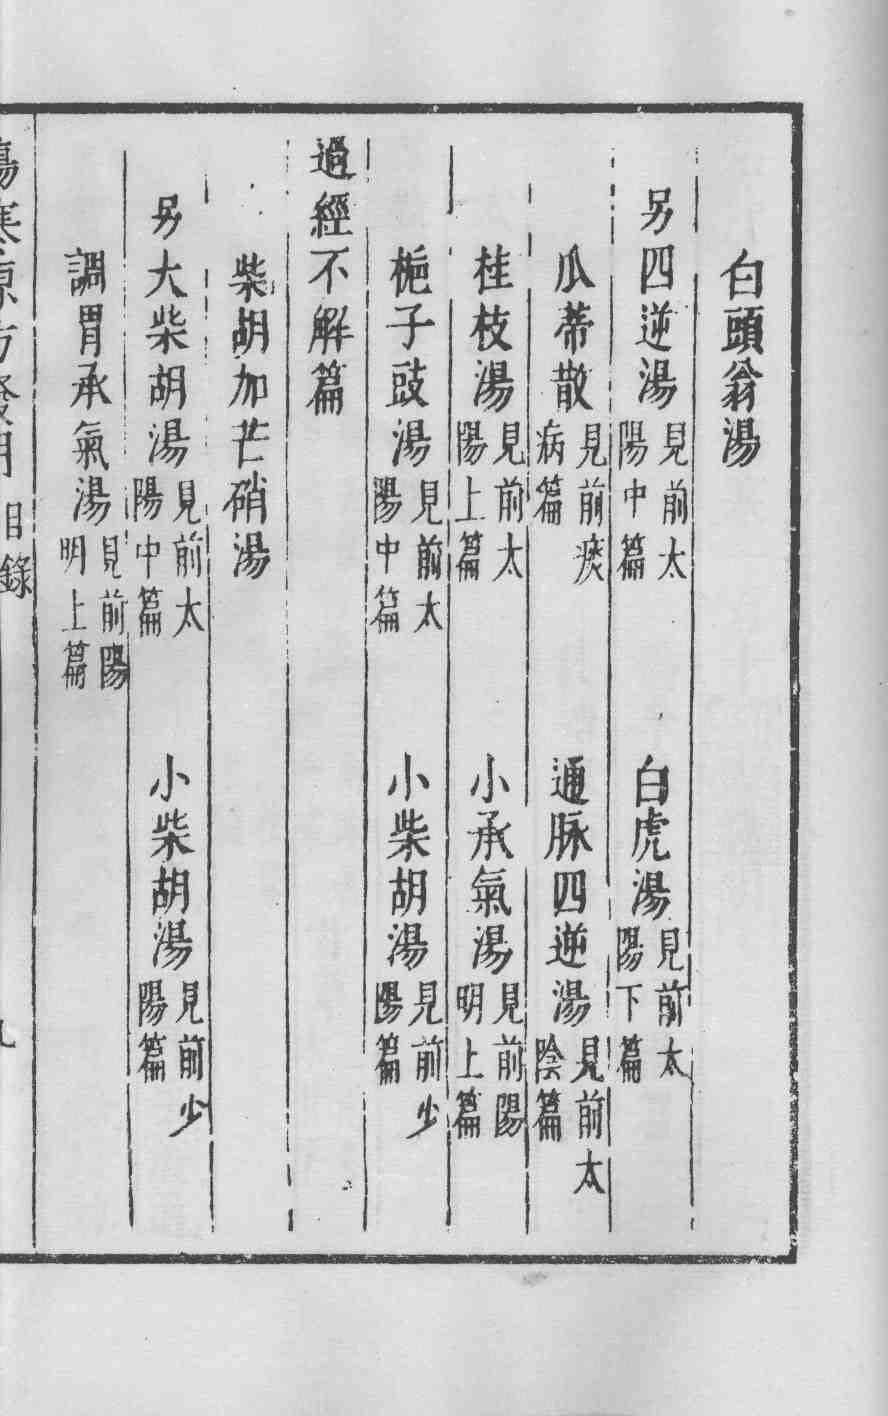 白頭翁湯
另四逆湯 見前太陽中篇 白虎湯 見前太陽下篇
瓜蒂散 見前痰病篇 通脉四逆湯 見前太陰篇
桂枝湯 見前太陽上篇 小承氣湯 見前陽明上篇
梔子豉湯 見前太陽中篇 小柴胡湯 見前少陽篇
過經不解篇
柴胡加芒硝湯
另大柴胡湯 見前太陽中篇 小柴胡湯 見前少陽篇
調胃承氣湯 見前陽明上篇
傷寒原方發明 目錄 九